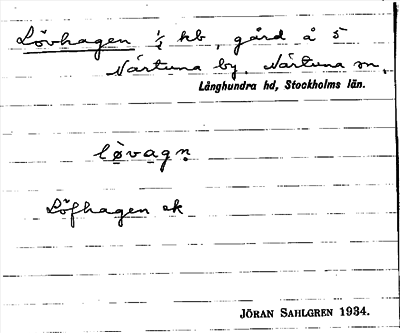 Lövhagen ½ hb, gård å 5
Närtuna by, Närtuna sn,
Långhundra hd, Stockholms län.
løvagn
Löfhagen ek
JÖRAN SAHLGREN 1934.